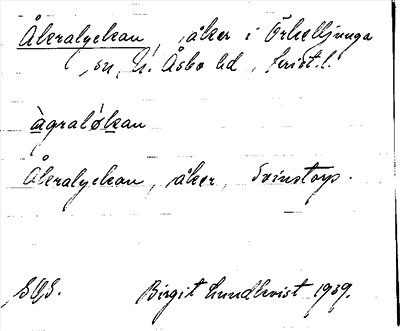 Åkeralyckan, åker i Örkelljunga
sn, N. Åsbo hd, Krist.l.
àgralǿkan
Åkeralyckan, åker, Svinstorp.
SOS. Birgit Lundkvist 1939.